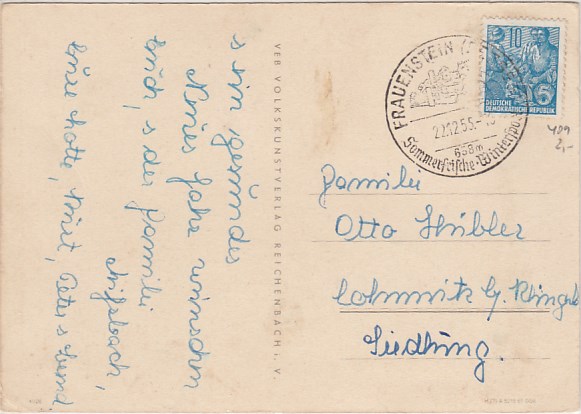 s ein gesundes
Neues Jahr wünschen
Euch, s der Familie
Eure Lotte, Kurt, Peter s Bernd.
VEB VOLKSKUNSTVERLAG REICHENBACH i. V.
FRAUENSTEIN (ERZGEB.)
22.12.55.-
658m
Sommerfrische-Wintersport
10
5
DEUTSCHE
DEMOKRATISCHE REPUBLIK
489
2,-
Familie
Otto Hübler
Colmnitz b/ Klingenb
Siedlung.